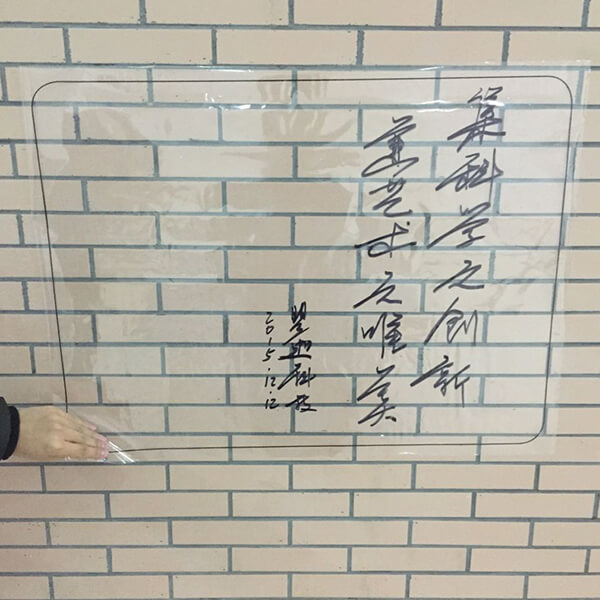 科学之创新
艺术之唯美
科技
2015.12.12